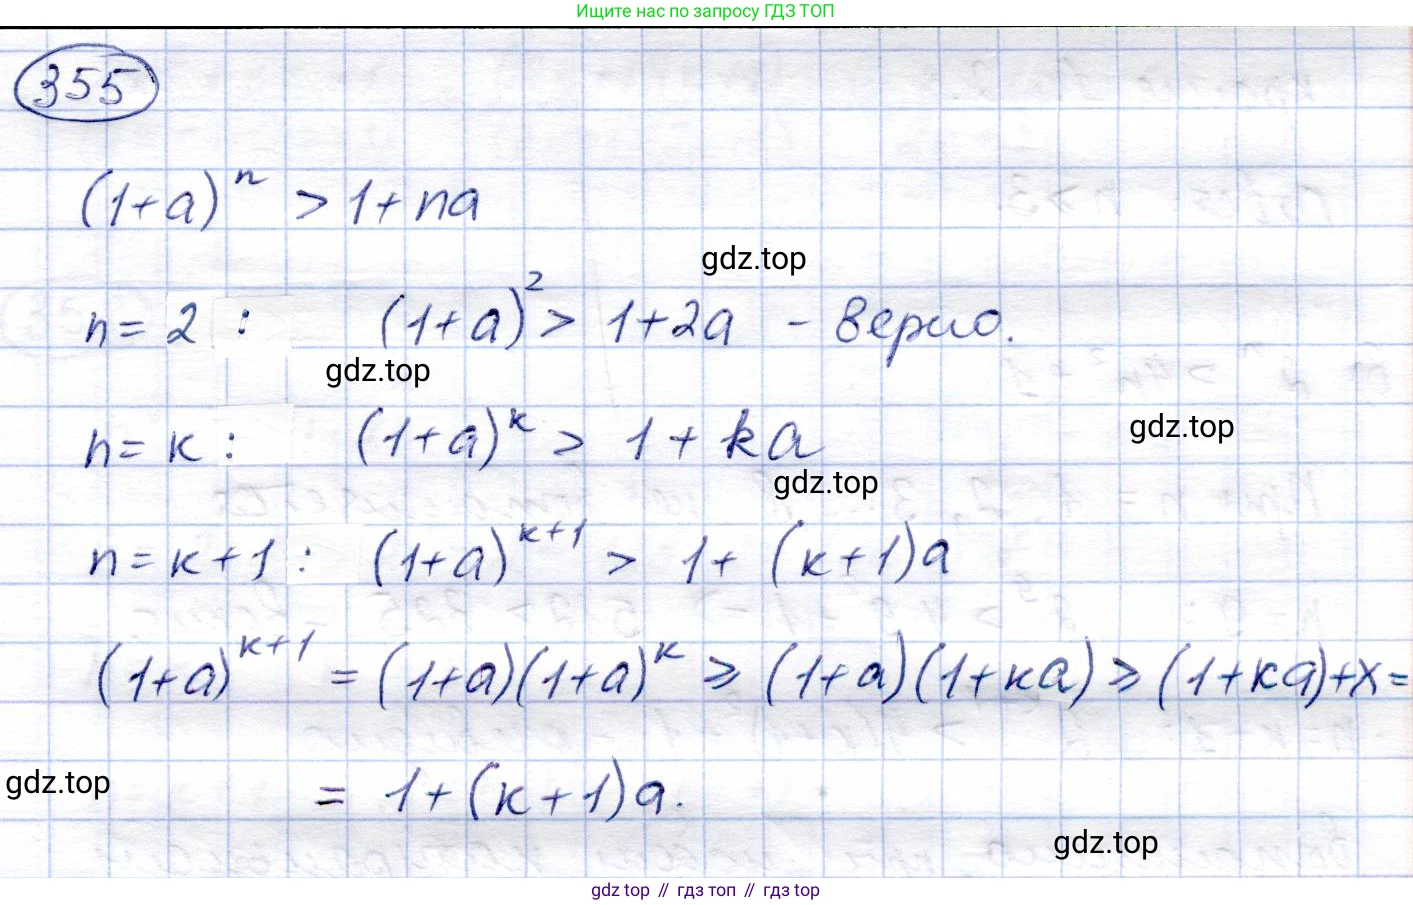 Ищите нас по запросу ГДЗ ТОП
355
(1+a)^n > 1+na
gdz.top
n = 2 : (1+a)^2 > 1+2a - верно.
gdz.top
n = к : (1+a)^к > 1 + ka
gdz.top
gdz.top
n = к+1 : (1+a)^{к+1} > 1+ (к+1)a
(1+a)^{к+1} = (1+a)(1+a)^к ⩾ (1+a)(1+ка) ⩾ (1+ка)+x =
gdz.top
= 1+(к+1)a.
gdz.top
gdz top // гдз топ // гдз top